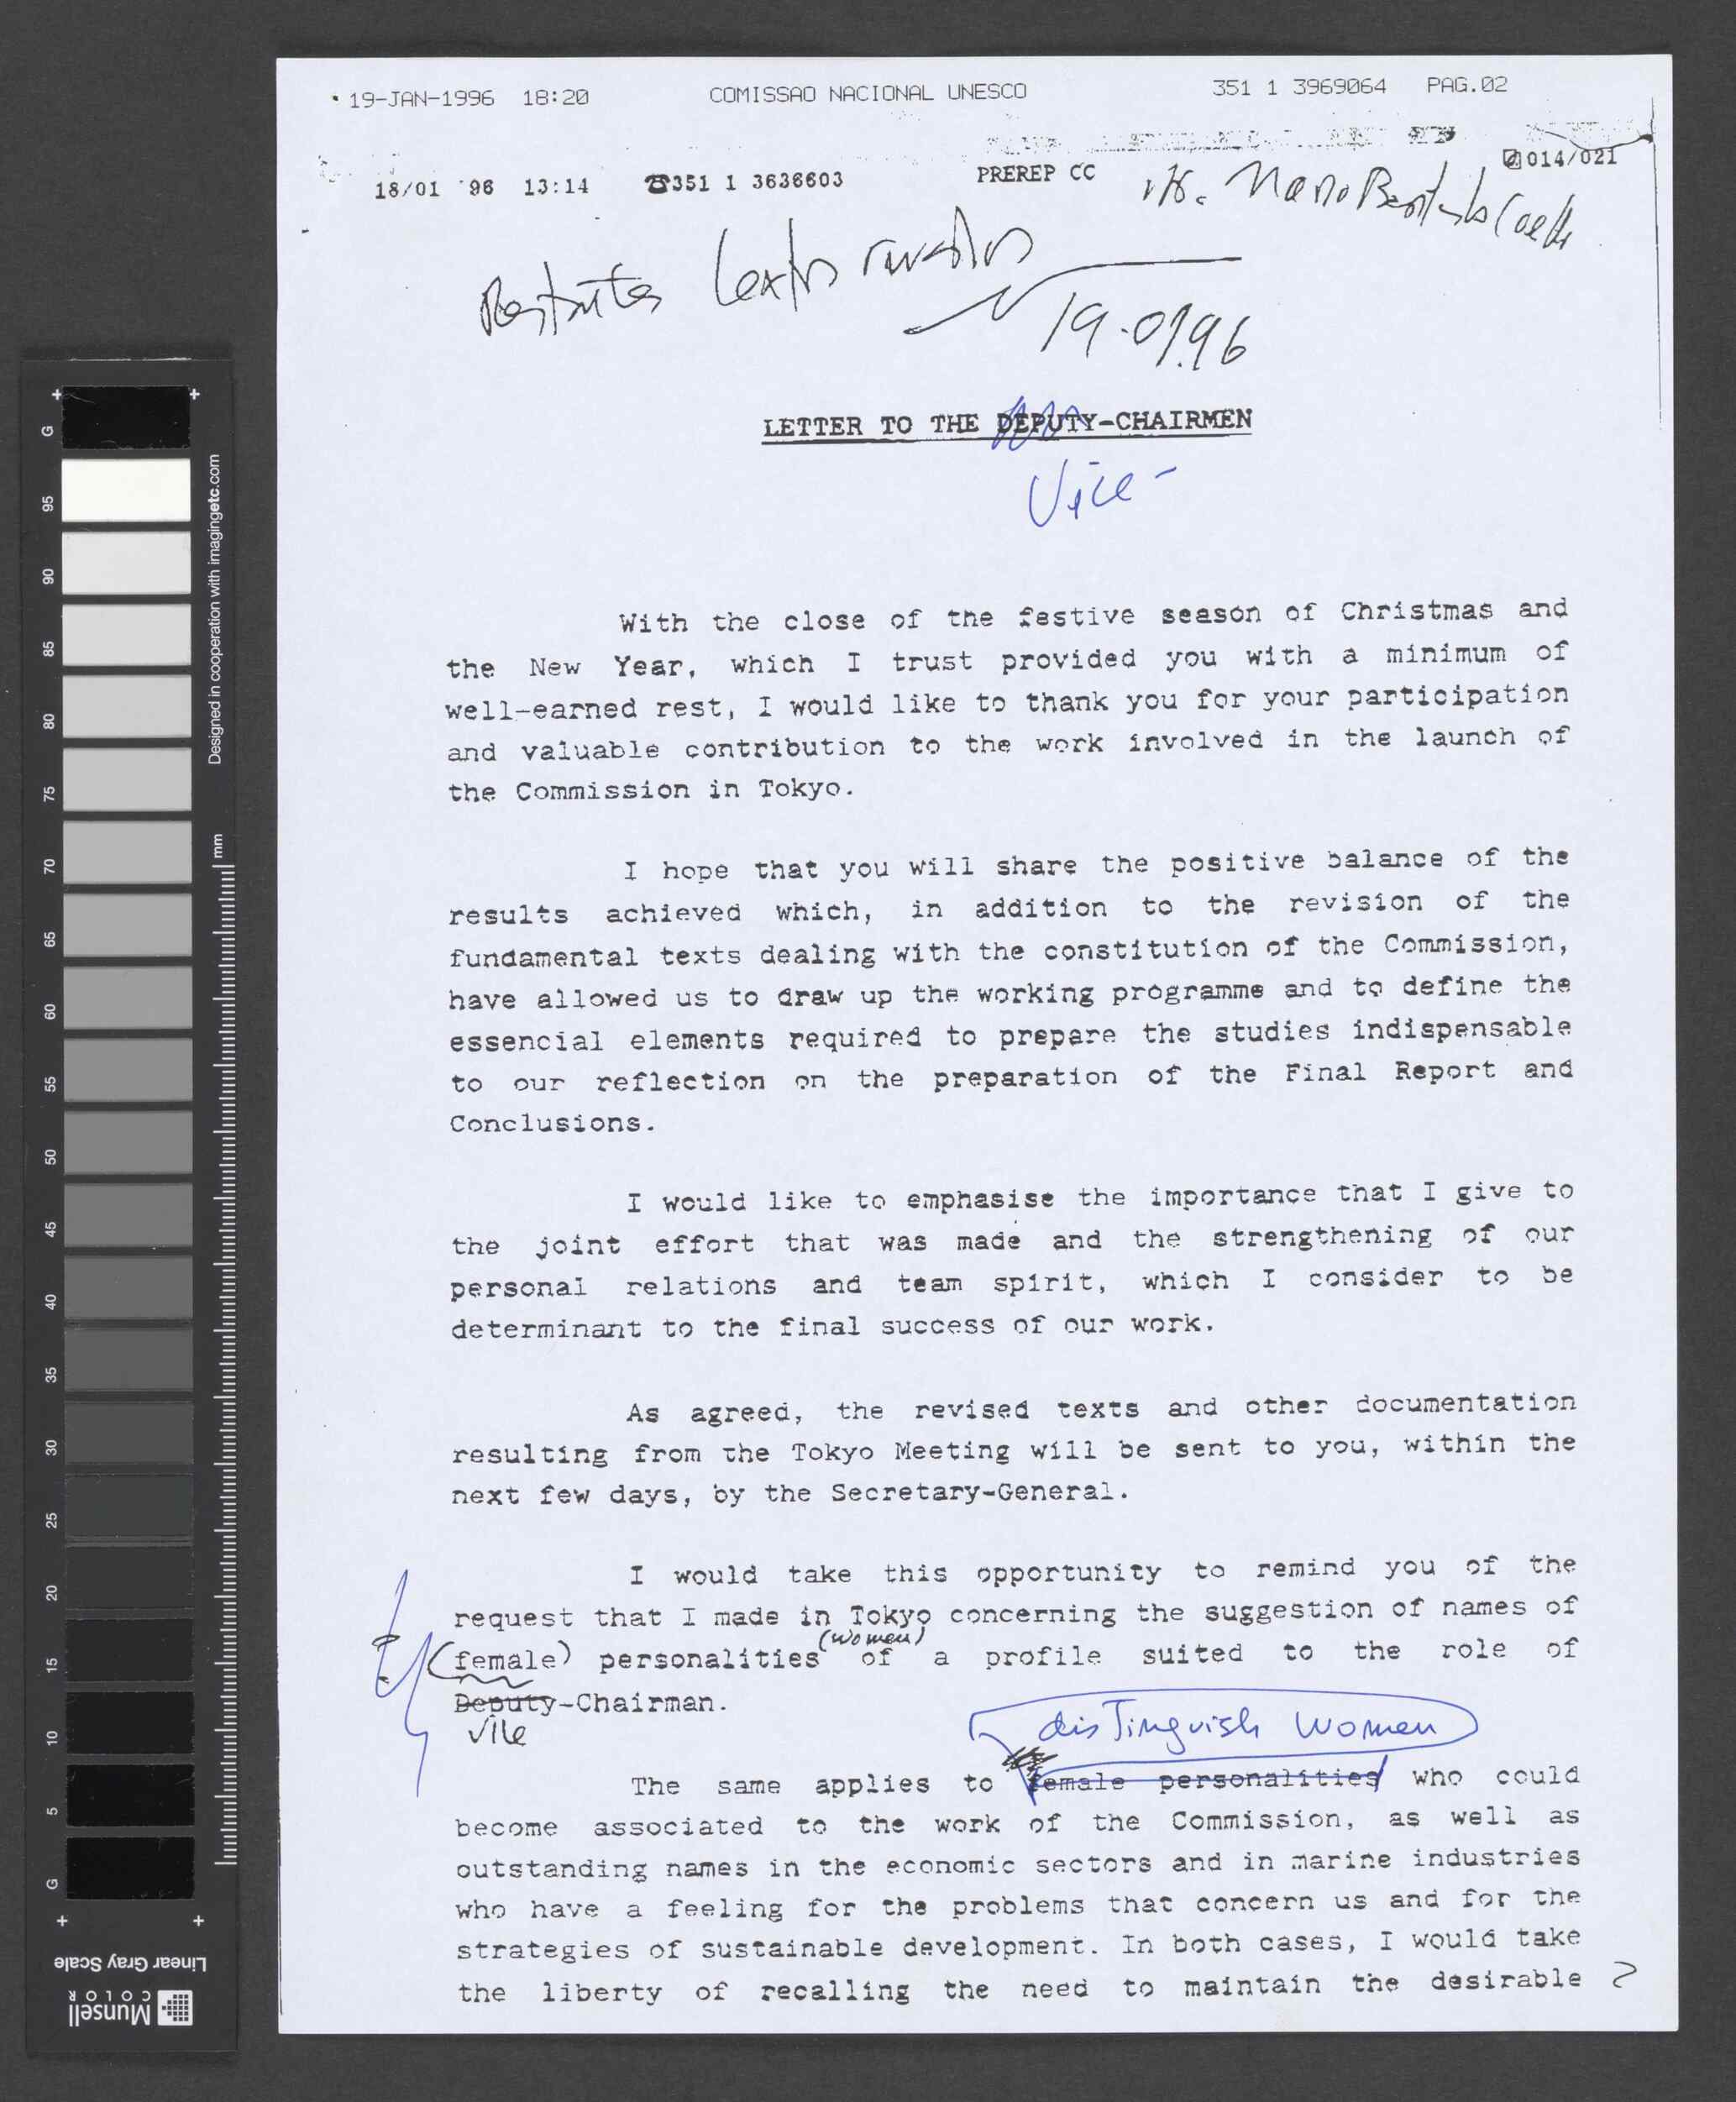 19-JAN-1996 18:20 COMISSAO NACIONAL UNESCO 351 1 3969064 PAG.02
18/01 '96 13:14 ☎351 1 3636603 PREREP CC 014/021
19.01.96
LETTER TO THE DEPUTY-CHAIRMEN
Vice-
With the close of the festive season of Christmas and
the New Year, which I trust provided you with a minimum of
well-earned rest, I would like to thank you for your participation
and valuable contribution to the work involved in the launch of
the Commission in Tokyo.
I hope that you will share the positive balance of the
results achieved which, in addition to the revision of the
fundamental texts dealing with the constitution of the Commission,
have allowed us to draw up the working programme and to define the
essencial elements required to prepare the studies indispensable
to our reflection on the preparation of the Final Report and
Conclusions.
I would like to emphasise the importance that I give to
the joint effort that was made and the strengthening of our
personal relations and team spirit, which I consider to be
determinant to the final success of our work.
As agreed, the revised texts and other documentation
resulting from the Tokyo Meeting will be sent to you, within the
next few days, by the Secretary-General.
I would take this opportunity to remind you of the
request that I made in Tokyo concerning the suggestion of names of
(women)
(female) personalities of a profile suited to the role of
Deputy-Chairman.
Vice
distinguish women
The same applies to female personalities who could
become associated to the work of the Commission, as well as
outstanding names in the economic sectors and in marine industries
who have a feeling for the problems that concern us and for the
strategies of sustainable development. In both cases, I would take
the liberty of recalling the need to maintain the desirable
G 95 90 85 80 75 70 65 60 55 50 45 40 35 30 25 20 15 10 5 G
Designed in cooperation with imagingetc.com
mm
Linear Gray Scale
Munsell
COLOR